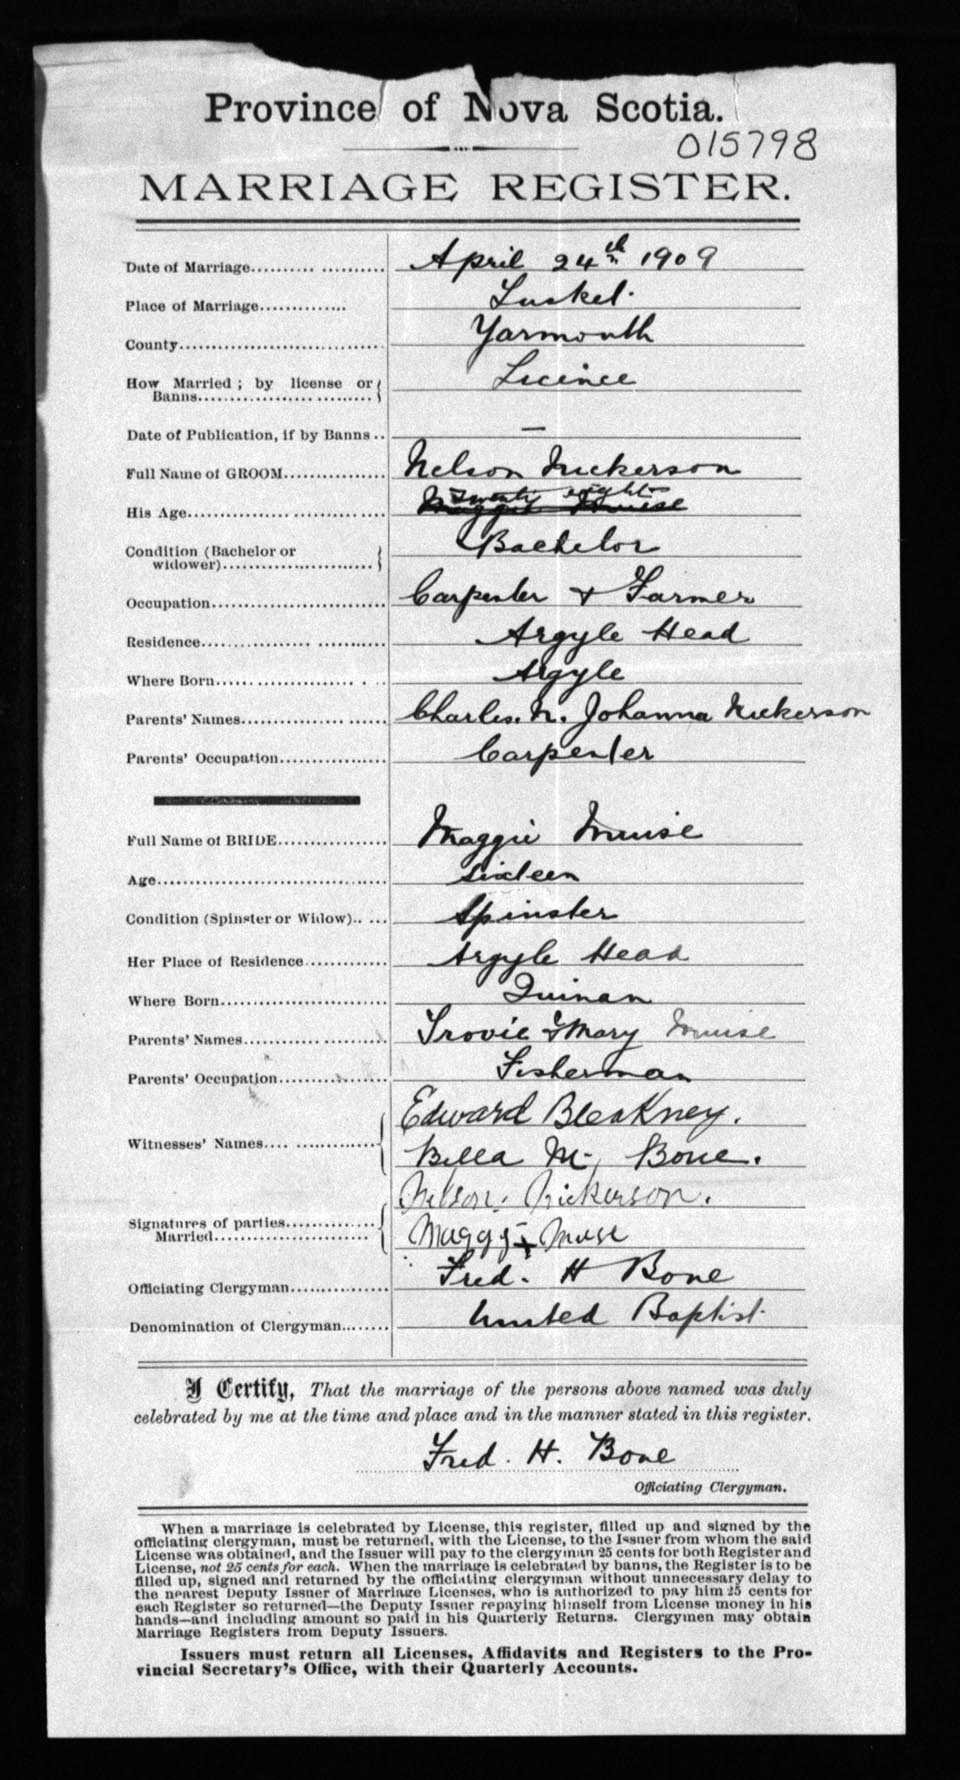 Province of Nova Scotia.
015798
MARRIAGE REGISTER.
Date of Marriage.................... April 24th 1909
Place of Marriage.............. Tusket.
County................................ Yarmouth
How Married ; by license or
Banns........................ Licince
Date of Publication, if by Banns .. —
Full Name of GROOM................ Nelson Nickerson
His Age............................... Twenty eight
Maggie Muise
Condition (Bachelor or
widower)........................... Bachelor
Occupation........................... Carpenter & Farmer
Residence............................ Argyle Head
Where Born........................ Argyle
Parents' Names...................... Charles. N. Johanna Nickerson
Parents' Occupation................. Carpenter
Full Name of BRIDE................. Maggie Muise
Age.................................... Sixteen
Condition (Spinster or Widow)..... Spinster
Her Place of Residence............. Argyle Head
Where Born.......................... Quinan
Parents' Names...................... Trovie & Mary Muise
Parents' Occupation................. Fisherman
Edward Bleakney.
Witnesses' Names.................... Bella M. Bone.
Nelson. Nickerson.
Signatures of parties...............
Married........................... Maggy + Muse
Officiating Clergyman............... Fred. H Bone
Denomination of Clergyman........ United Baptist.
I Certify, That the marriage of the persons above named was duly
celebrated by me at the time and place and in the manner stated in this register.
Fred. H. Bone
Officiating Clergyman.
When a marriage is celebrated by License, this register, filled up and signed by the
officiating clergyman, must be returned, with the License, to the Issuer from whom the said
License was obtained, and the Issuer will pay to the clergyman 25 cents for both Register and
License, not 25 cents for each. When the marriage is celebrated by banns, the Register is to be
filled up, signed and returned by the officiating clergyman without unnecessary delay to
the nearest Deputy Issuer of Marriage Licenses, who is authorized to pay him 25 cents for
each Register so returned—the Deputy Issuer repaying himself from License money in his
hands—and including amount so paid in his Quarterly Returns. Clergymen may obtain
Marriage Registers from Deputy Issuers.
Issuers must return all Licenses, Affidavits and Registers to the Pro-
vincial Secretary's Office, with their Quarterly Accounts.